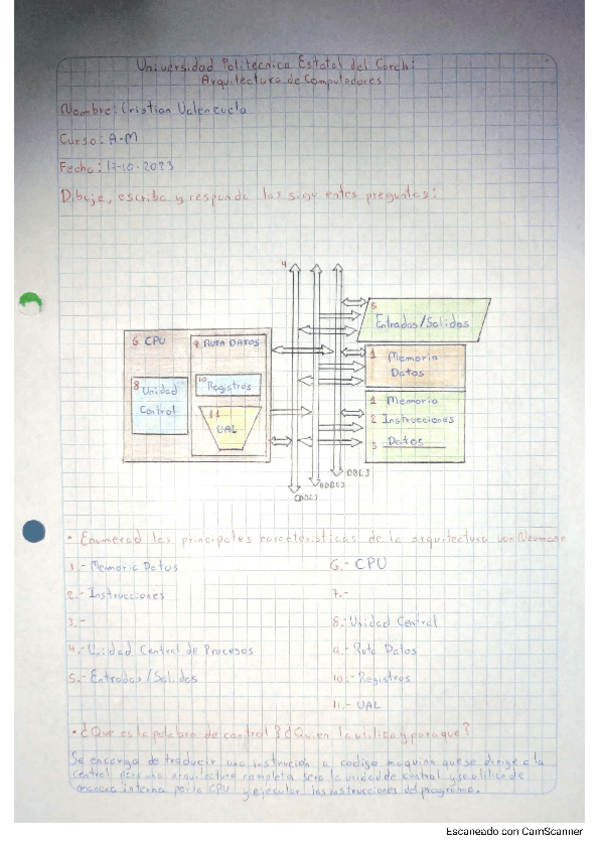 Universidad Politecnica Estatal del Carchi
Arquitectura de Computadores
Nombre: Cristian Valenzuela
Curso: A-M
Fecha: 17-10-2023
Dibuje, escriba y responda las siguientes preguntas:
4
5
Entradas/Salidas
6 CPU
9 RUTA DATOS
1 Memoria
Datos
8 Unidad
Control
10 Registros
11
UAL
1 Memoria
2 Instrucciones
3 Datos
DBC]
ADBC]
CDBC]
• Enumerad las principales características de la arquitectura von Neumann
1.- Memoria Datos
2.- Instrucciones
3.-
4.- Unidad Central de Procesos
5.- Entradas/Salidas
6.- CPU
7.-
8.- Unidad Central
9.- Ruta Datos
10.- Registros
11.- UAL
• ¿Que es la palabra de control? ¿Quien la utiliza y para que?
Se encarga de traducir una instrucion a codigo maquina que se dirige a la
central para una arquitectura completa sera la unidad de control y se utiliza de
manera interna por la CPU y ejecutar las instrucciones del programa.
Escaneado con CamScanner